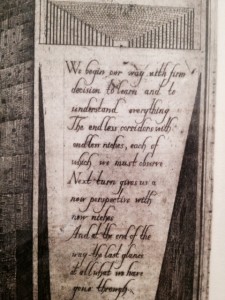 We begin our way with firm
decision to learn and to
understand everything
The endless corridors with
endless niches, each of
which we must observe
Next turn gives us a
new perspective with
new niches
And at the end of the
way the last glance
at all what we have
gone through